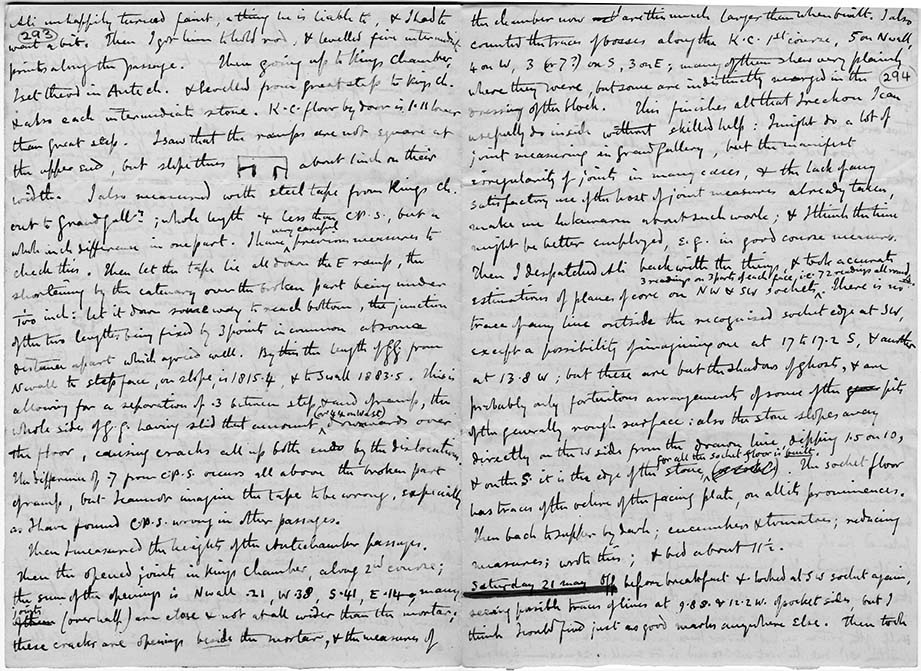 Ali unhappily turned faint, a thing he is liable to, & I had to
(293)
wait a bit. Then I got him to hold rod, & levelled five intermediate
points along the passage. Then going up to Kings Chamber,
I set theod in Antech. & levelled from great step to Kings Ch.
& also each intermediate stone. K.C. floor by door is 1.11 lower
than great step. I saw that the ramps are not square at
the upper end, but slope thus about 1 inch on their
width. I also measured with steel tape from Kings Ch.
out to Grand Gall.y; whole length .4 less than C.P.S., but a
whole inch difference in one part. I have very careful previous measures to
check this. Then let the tape lie all down the E ramp, the
shortening by the catenary over the broken part being under
1/100 inch: let it down some way to reach bottom, the junction
of the two lengths being fixed by 3 points in common at some
distance apart which agreed well. By this the length of g.g. from
N wall to step face, on slope, is 1815.4 & to S wall 1883.5. This is
allowing for a separation of .3 between step & end of ramp, the
whole sides of g.g. having slid that amount (or .44 on W side) downwards over
the floor, causing cracks all up both ends by the dislocation.
The difference of .7 from C.P.S. occurs all above the broken part
of ramp, but I cannot imagine the tape to be wrong, especially
as I have found C.P.S. wrong in other passages.
Then I measured the heights of the Antechamber passages.
Then the opened joints in Kings Chamber, along 2nd course;
the sum of the openings is N wall .21, W .38, S .41, E .14 & many
joints (over half) are close & not at all wider than the mortar;
these cracks are openings beside the mortar, & the measures of
the chamber now are this much larger than when built. I also
counted the traces of bosses along the K.C. 1st course, 5 on N wall,
4 on W, 3 (or 7?) on S, 3 on E; many of them shew very plainly
where they were, but some are indistinctly merged in the
(294)
dressing of the block. This finishes all that I reckon I can
usefully do inside without skilled help: I might do a lot of
joint measuring in Grand Gallery, but the manifest
irregularity of joints in many cases, & the lack of any
satisfactory use of the host of joint measures already taken
make me lukewarm about such work; & I think the time
might be better employed, e.g. in good course measures.
Then I despatched Ali back with the things, & took accurate
estimations of planes of core on NW & SW sockets, 3 readings on 3 parts of each face, i.e. 72 readings all round. There is no
trace of any line outside the recognised socket edge at SW,
except a possibility of imagining one at 17 to 17.2 S, & another
at 13.8 W; but these are but the shadow of ghosts, & are
probably only fortuitous arrangement of some of the pits
of the generally rough surface: also the stone slopes away
directly on the W sides from the drawn line, dipping 1.5 on 10,
& on the S. it is the edge of the stone, for all the socket floor is built. The socket floor
has traces of the ochre of the facing plate, on all its prominences.
Then back to supper by dark; cucumbers & tomatoes; reducing
measures; wrote this; & bed about 11½.
Saturday 21 May Off before breakfast & looked at SW socket again,
seeing possible traces of lines at 9.8 S. & 12.2 W. of socket sides, but I
think I could find just as good marks anywhere else. Then took